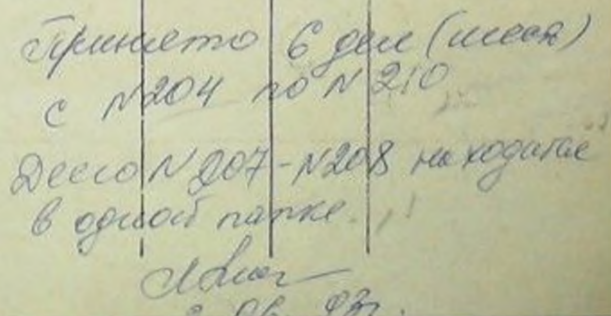 Принято 6 дел (шесть)
с N204 по N210
Дело N207-N208 находятся
в одной папке.
06 93г.